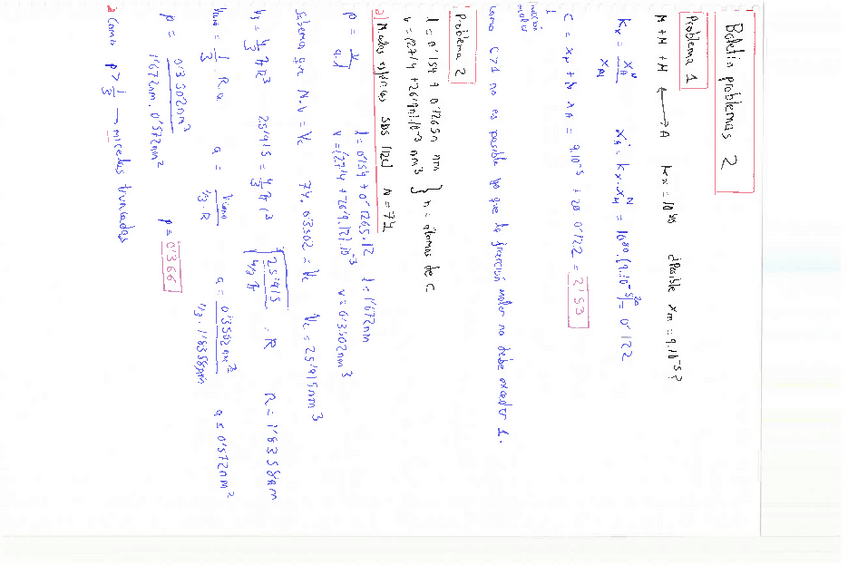 Boletín problemas 2
Problema 1
M + M + M ⟷ A    Kx = 10^80    ¿Posible xM = 9.10^-5?
Kx = xA / xM^N    xA = Kx . xM^N = 10^80 . (9.10^-5)^20 = 0'122
C = xM + N xA = 9.10^-5 + 20 0'122 = 2'53
↓
fracción
molar
Como C > 1 no es posible ya que la fracción molar no debe exceder 1.
Problema 2
l = 0'154 + 0'1265n nm
v = (27'4 + 26'9n).10^-3 nm^3 } n = átomos de C
a) Micelas esféricas SDS (12C) N = 74
p = v / a.l    l = 0'154 + 0'1265.12    l = 1'672nm
v = (27'4 + 26'9.12).10^-3    v = 0'3502nm^3
Sabemos que N.v = Vc    74. 0'3502 = Vc    Vc = 25'915nm^3
Vc = 4/3 π R^3    25'915 = 4/3 π r^3    ∛(25'915 / 4/3 π) = R    R = 1'8358nm
= 1/3 . R.a    a = / 1/3.R    a = 0'3502nm^3 / 1/3.1'8358nm    a = 0'572nm^2
p = 0'3502nm^3 / 1'672nm . 0'572nm^2    p = 0'366
Como p > 1/3 → micelas truncadas